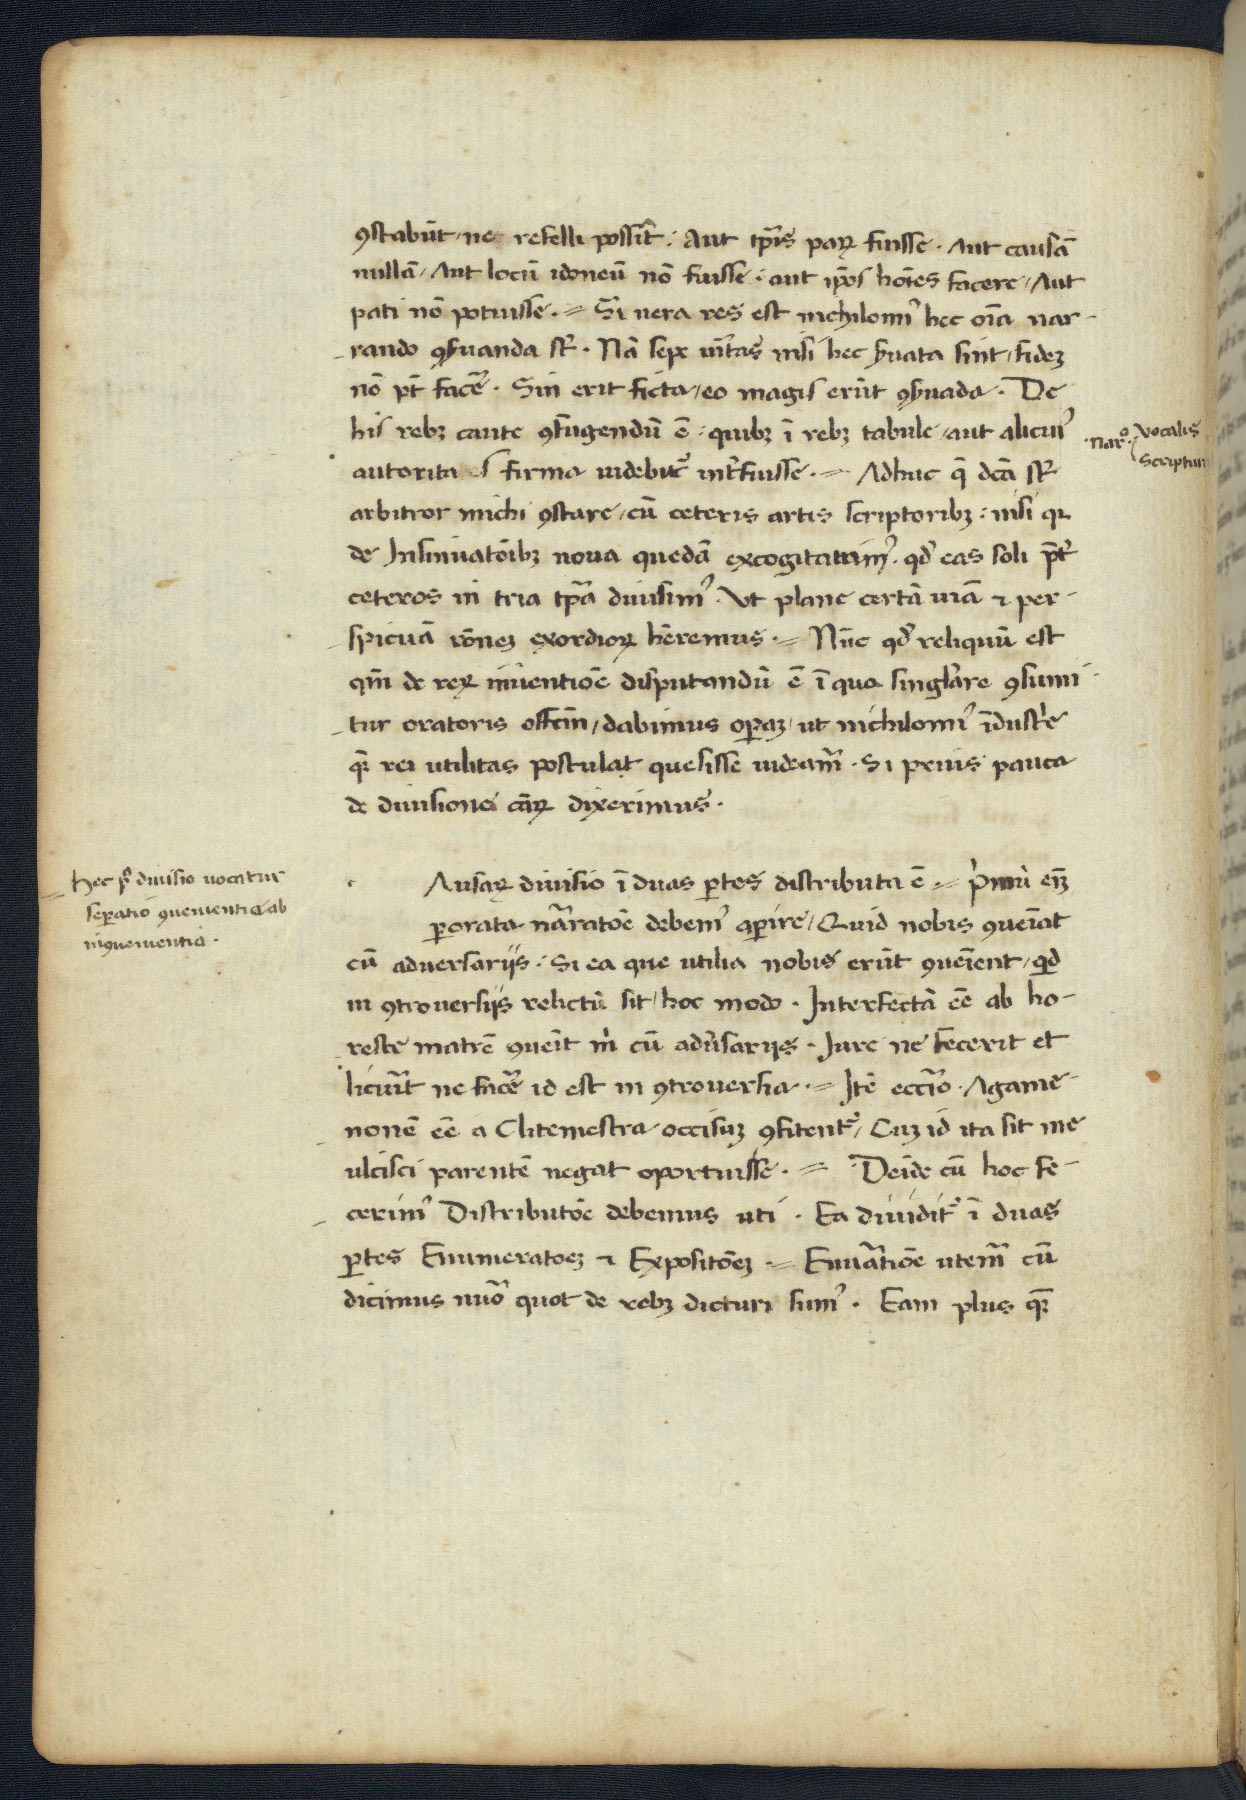 ꝯstabūt / ne refelli possīt : Aut tp̄is paꝝ fuisse . Aut causā
nullā / Aut locū idoneū nō fuisse : aut ip̄os hoīes facere / Aut
pati nō potuisse . = Si uera res est nichilomiꝰ hec oīa nar-
rando ꝯẜuanda st̄ . Nā sepe uītas nisi hec ẜuata sint / fideꝫ
nō pt̄ facē . Sin erit ficta / eo magis erūt ꝯẜuāda . De
his rebꝫ caute ꝯfīgendū ē : quibꝫ ī rebꝫ tabule / aut alicuiꝰ
autoritas firma uidebit᷑ int̄fuisse . = Adhuc q̄ dc̄a st̄
arbitror michi ꝯstare / cū ceteris artis scriptoribꝫ : nisi qꝛ
de Insinuatōibꝫ noua quedā excogitauimꝰ . qd̄ eas soli p̄t̄
ceteros in tria tp̄a diuisimꝰ . Ut plane certā uiā ⁊ per-
spicuā rōneꝫ exordioꝝ hēremus . = Nūc qd̄ reliquū est
qm̄ de reꝝ inuentiōe disputandū ē ī quo singlare ꝯsumi-
tur oratoris offim̄ / dabimus opaꝫ / ut nichilomiꝰ īdustͥe
qꝫ̄ rei utilitas postulat quesisse uideam̄ . Si prius pauca
de diuisione cāꝝ dixerimus .
Ausaꝝ diuisio ī duas ꝑtes distributa ē = pͥmū eīꝫ
ꝑorata narratōe debemꝰ aꝑire / Quid nobis ꝯueīat
cū aduersarijs . Si ea que utilia nobis erūt ꝯueīent / qd̄
in ꝯtrouersijs relictū sit / hoc modo . Interfectā eē ab ho-
reste matrē ꝯueīt m̄ cū adūsarijs . Iure ne fecerit et
licuit ne facē id est in ꝯtrouersia . = Itē eccͣrio . Agame-
nonē eē a Clitemestra occisuꝫ ꝯfitent᷑ / Cuꝫ id ita sit me
ulcisci parentē negāt oportuisse . = Deīde cū hoc fe-
cerimꝰ Distributōe debemus uti . Ea diuidit᷑ ī duas
ꝑtes Enumeratōeꝫ ⁊ Expositōeꝫ . = Enūatiōe utem̄ cū
dicimus nūo quot de rebꝫ dicturi sumꝰ . Eam plus qꝫ̄
Narᵒ . Vocalis
Scriptur
Hec pᵃ diuisio uocatur
seꝑatio ꝯuenientia ab
inꝯuenientia .